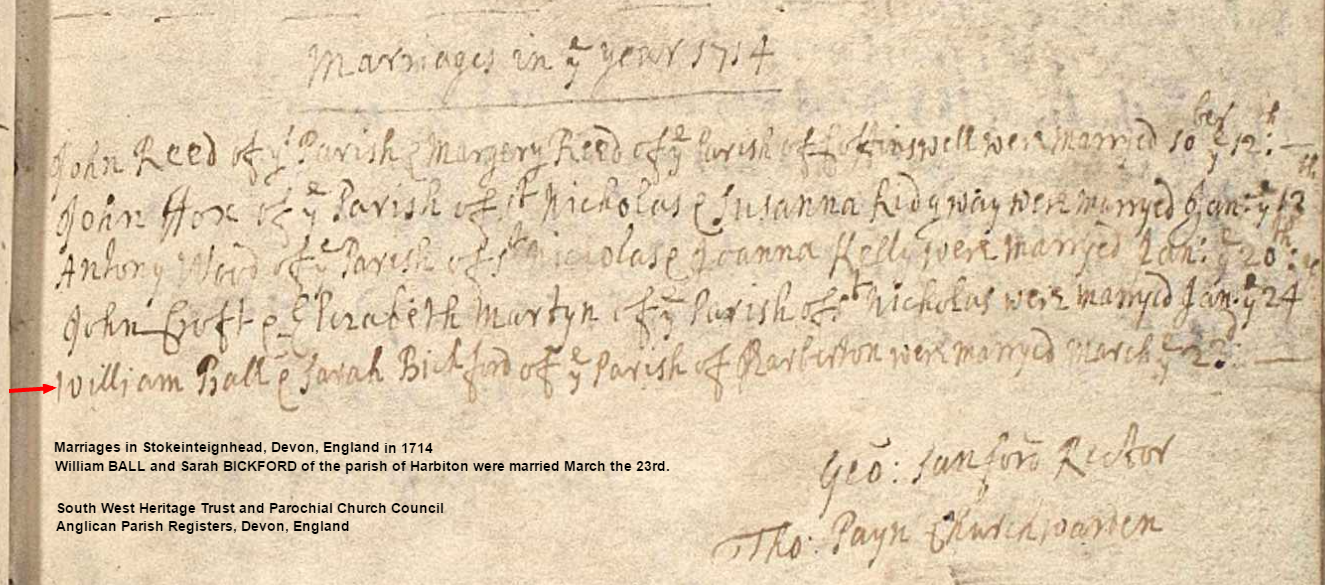 Marriages in yᵉ year 1714
John Reed of yᵉ Parish & Margery Reed of yᵉ Parish of Coffinswell were marryed 10ber yᵉ 12th:
John Hox of yᵉ Parish of St Nicholas & Susanna Ridgway were marryed Jan: yᵉ 13th
Antony Wood of yᵉ Parish of St Nicolas & Joanna Kelly were marryed Jan: yᵉ 20th:
John Croft & Elizabeth Martyn of yᵉ Parish of St Nicholas were marryed Jan: yᵉ 24
William Ball & Sarah Bickford of yᵉ Parish of Harberton were marryed March yᵉ
Marriages in Stokeinteignhead, Devon, England in 1714
William BALL and Sarah BICKFORD of the parish of Harbiton were married March the 23rd.
Geo: Sanford Rector
South West Heritage Trust and Parochial Church Council
Anglican Parish Registers, Devon, England
Tho: Payn Churchwarden